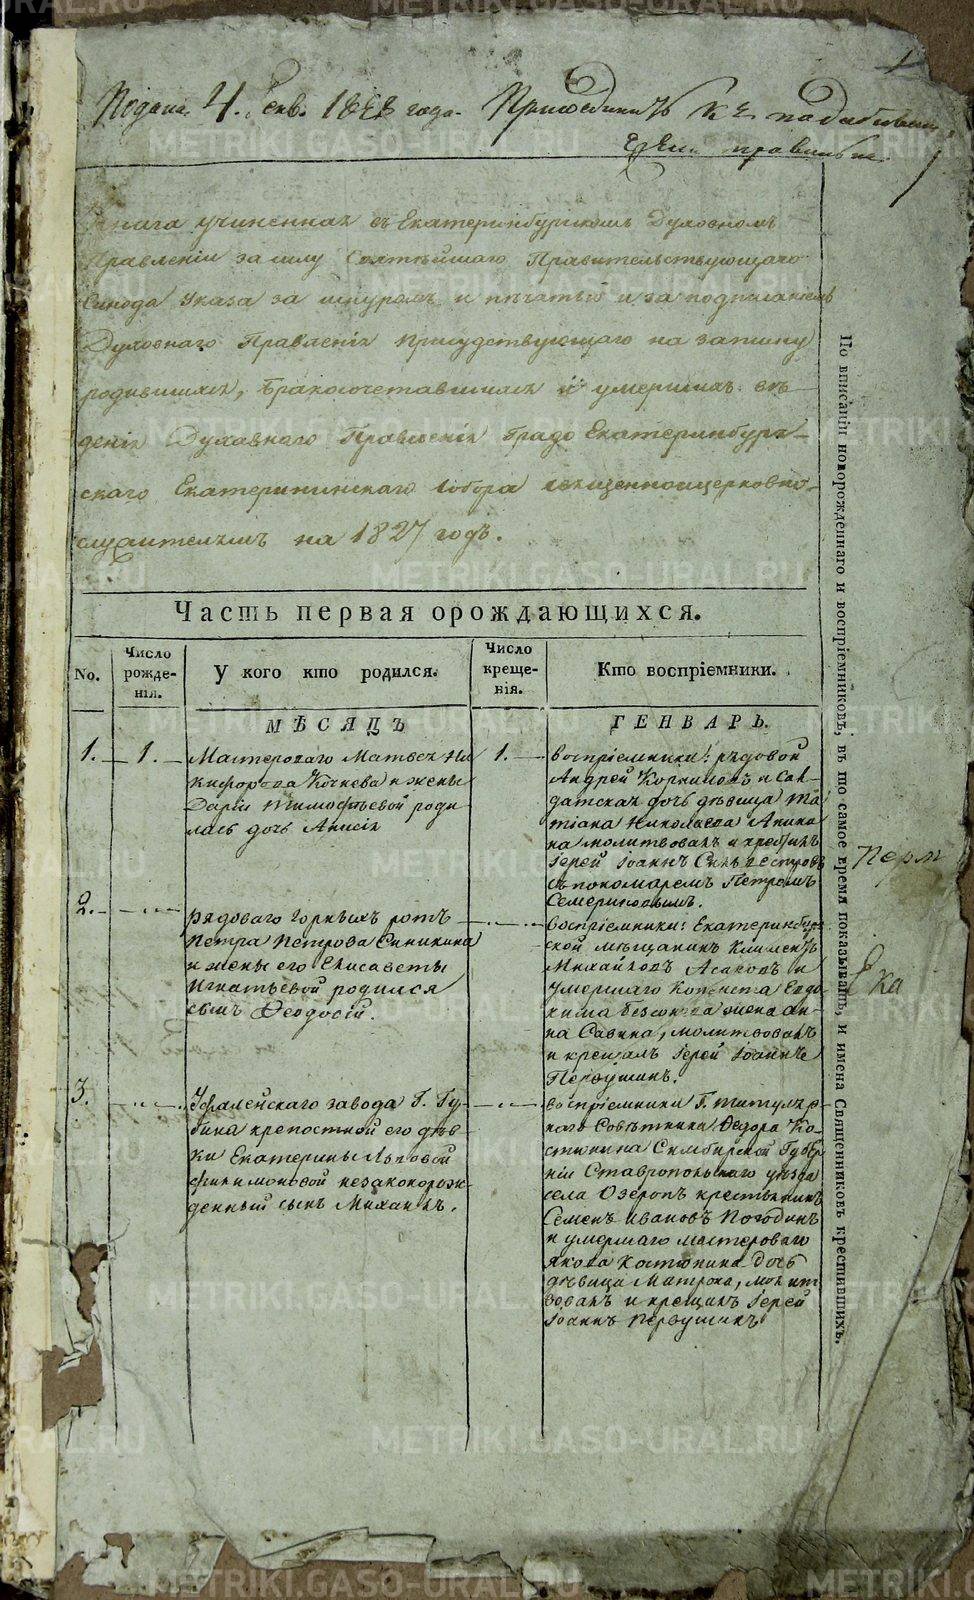 1
Подана 4. Генв. 1828 года. Приобщить къ
Книга учиненная въ Екатеринбургскомъ Духовномъ
Правленіи за силу Святѣйшаго Правительствующаго
Синода Указа за шнуромъ и печатью и за подписаніемъ
Духовнаго Правленія присудствующаго на записку
родившихся, бракосочетавшихся и умершихъ вѣ-
денія Духовнаго Правленія Градо Екатеринбург-
скаго Екатерининскаго Собора священноицерковно-
служителямъ на 1827 годъ.
Часть первая орождающихся.
No.
Число рожде-нія.
У кого кто родился.
Число креще-нія.
Кто воспріемники.
МѢСЯЦЪ
ГЕНВАРЬ.
1.
1.
Мастероваго Матвея Ни
кифорова Кочнева и жены
Дарьи Тимофѣевой роди
лась дочь Анисія
1.
воспріемники: рядовой
Андрей Корниловъ и Сол-
датская дочь дѣвица Та
тіана Николаева
молитвовалъ и крестилъ
Іерей Іоаннъ Сильвестровъ
съ пономаремъ Петромъ
2.
рядоваго горныхъ ротъ
Петра Петрова Синицина
и жены его Елисаветы
Игнатьевой родился
сынъ Феодосій.
воспріемники: Екатеринбург
ской мѣщанинъ Климентъ
Михайловъ и
умершаго Копеиста Евдо
кима жена Ан
на Савина, молитвовалъ
и крещалъ Іерей Іоаннъ
Первушинъ.
3.
Уфалейскаго завода Г. Гу-
бина крепостной его дѣв
ки Екатерины
Филимоновой незаконорож
денный сынъ Михаилъ.
воспріемники Г. Титуляр
наго Совѣтника Федора Ко-
стинина Симбирской Губер
ніи Ставропольскаго уѣзда
села Озеропъ крестьянинъ
Семенъ Ивановъ Погодинъ
и умершаго мастероваго
Якова Костюнина дочь
дѣвица Матрона, молит
вовалъ и крещалъ Іерей
Іоаннъ Первушинъ
По вписаніи новорожденнаго и воспріемниковъ, въ то самое время показывать, и имена Священниковъ крестившихъ.
Перм
Ека
METRIKI.GASO-URAL.RU